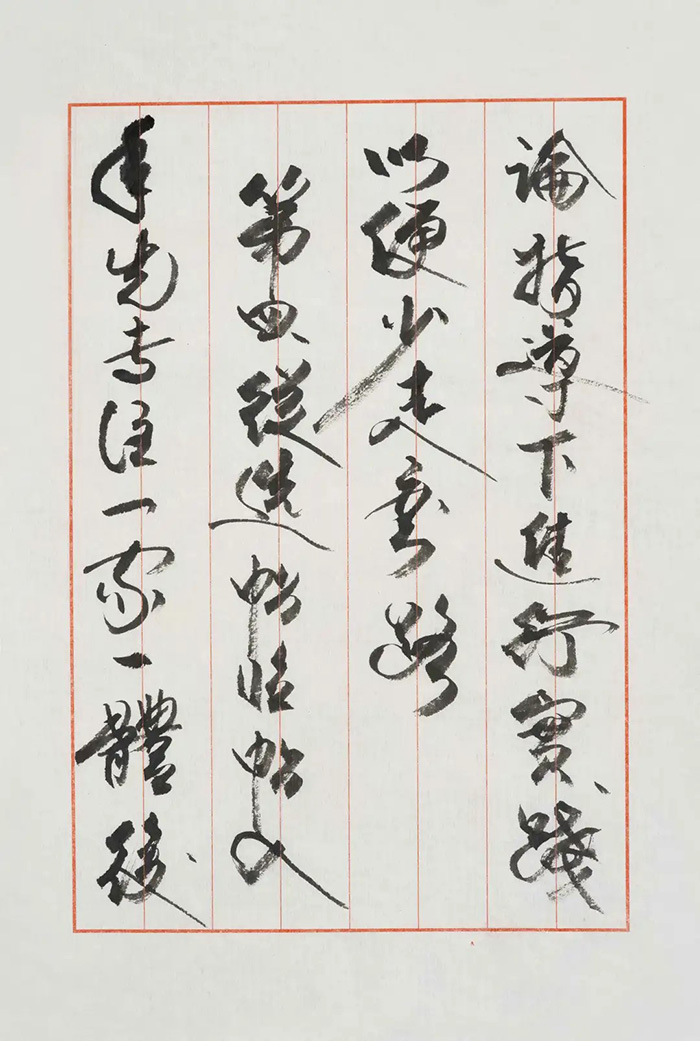 論指導下進行實踐
以便少走彎路
第四從選帖臨帖入
手先專注一家一體後